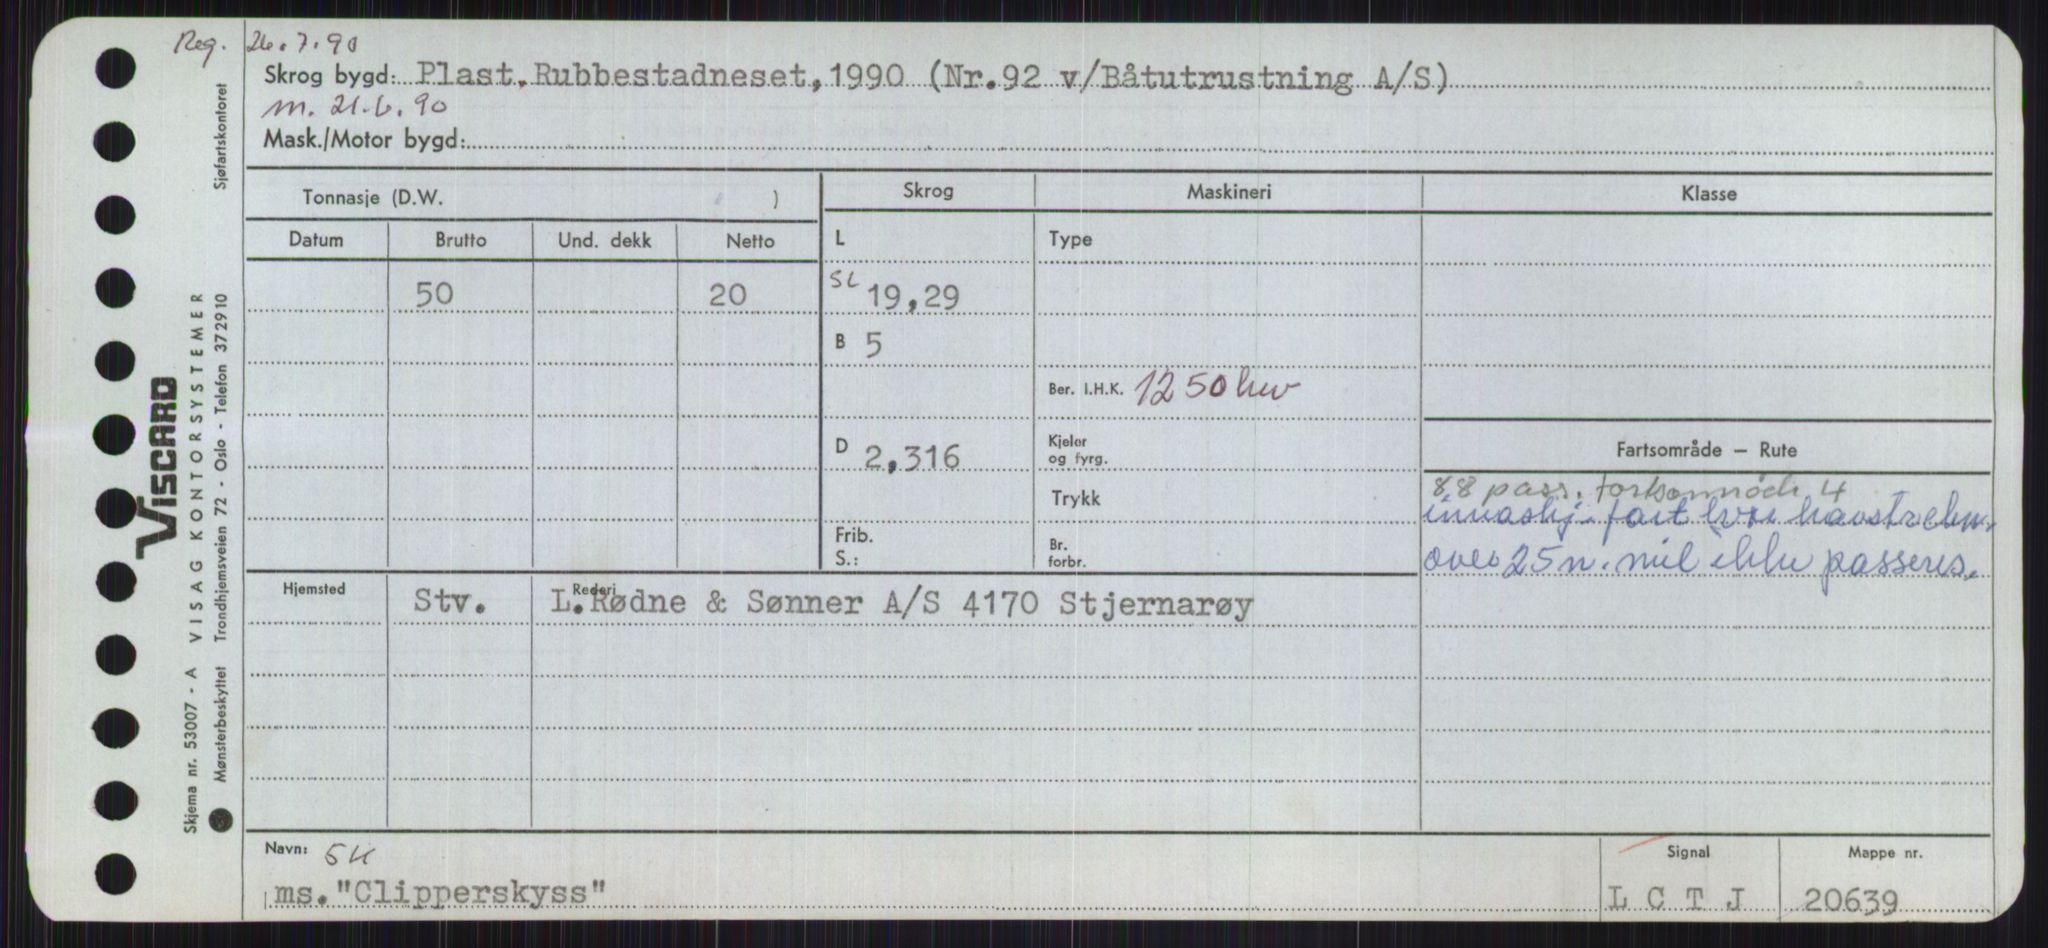 Reg. 26.7.90
Skrog bygd: Plast. Rubbestadneset, 1990 (Nr. 92 v/Båtutrustning A/S)
m. 21.6.90
Mask./Motor bygd:
Sjøfartskontoret
Tonnasje (D.W. )
Datum Brutto Und. dekk Netto
50 20
Skrog
L
SL 19,29
B 5
D 2,316
Frib.
S.:
Maskineri
Type
Ber. I.H.K. 1250 hw
Kjeler
og fyrg.
Trykk
Br.
forbr.
Klasse
Fartsområde – Rute
88 pass. fartsområde 4
innaskj. fart hvor havstrekn.
over 25 n. mil ikke passeres.
Hjemsted Rederi
Stv. L. Rødne & Sønner A/S 4170 Stjernarøy
Navn: 5K
ms. "Clipperskyss"
Signal
L C T J
Mappe nr.
20639
VISCARD
VISAG KONTORSYSTEMER
Skjema nr. 53007 - A
Mønsterbeskyttet Trondhjemsveien 72 - Oslo - Telefon 372910